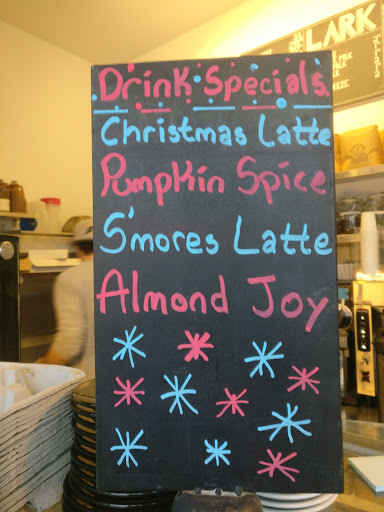 LARK
Drink Specials
Christmas Latte
Pumpkin Spice
S'mores Latte
Almond Joy